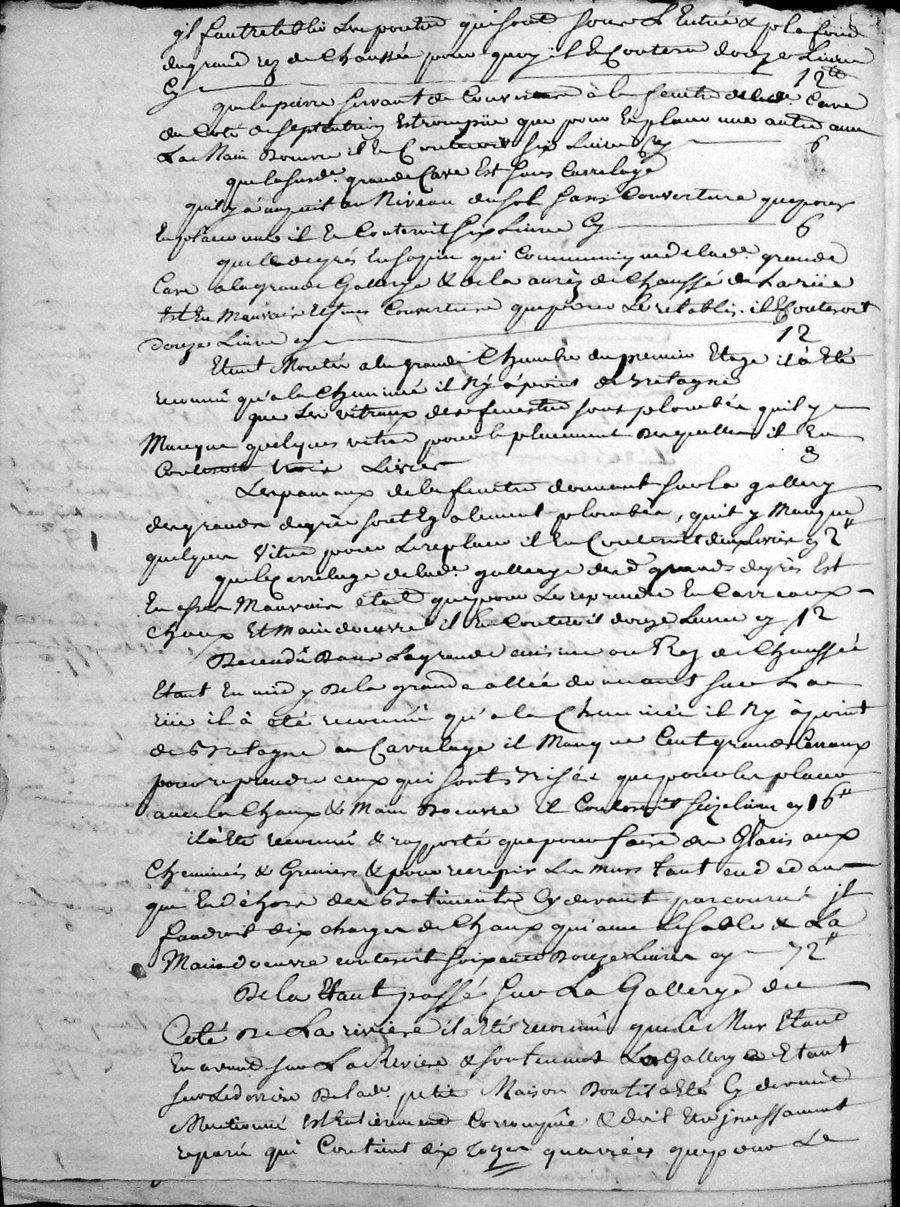 jl faut retablir Les poutres qui sont sous L'Entrée & plafond
du grand rez de Chaussée pour quoy il En Coutera douze Livres
Cy 12ᵗᵗ
que la pierre servant de Couverture à la fenetre de lad. Cave
du Coté de septentrion Est rompüe que pour En placer une autre avec
La Main Doeuvre il En Couteroit six Livres Cy 6
que la susd. grande Cave Est sans Carrelage
quil y à un puit au Niveau du sol sans Couverture que pour
En placer une il En Couteroit six Livres Cy 6
que le degrés En soyen qui Communique de lad. grande
Cave a la grande Gallerye & de la au réz de Chaussé de la rüe
Est En Mauvais Et sans Couverture que pour Le rétablir il Couteroit
douze Livres cy 12
Etant Monté a la grande Chambre du premier Etage il à Eté
reconnû qu'a la Cheminée il N'y à point de Bretagne
que Les vitraux des fenestres sont plombés quil y
Manque quelques vitres pour le placement desquelles il En
Couteroit trois Livres 3
Les panaux de la fenetre donnant sur la gallery
des grands degrés sont Egalement plombés, quil y Manque
quelques vitres pour Les replacer il En Couteroit deux livres cy 2ᵗᵗ
que le Carrelage de lad. gallerye desd. grands degrés Est
En fort Mauvais état que pour Le reprendre En Carreaux
Chaux Et Main doeuvre il En Couteroit douze Livres cy 12
Decendû Dans La grande cuisine au Rez de Chaussée
Etant En midy De la grande allée donnant sur La
rüe il à été reconnû qu'a la Cheminée il N'y à point
de Bretagne au Carrelage il Manque Cent grands Carraux
pour reprendre ceux qui sont brisés que pour les placer
avec les Chaux & Main Doeuvre il Couteroit seize livres cy 16ᵗᵗ
il à Eté reconnû & rapporté que pour faire des Glacis aux
Cheminées & Greniers & pour recrepir Les murs tant en dedans
que En déhors des Batiments Cy devant parcourus jl
faudroit dix charges de Chaux qui avec Le sable & La
Main doeuvre couteroit soixante Douze Livres cy 72ᵗᵗ
De la Etant passés sur La Gallerye du
Coté De La rivière il à Eté reconnû que le Mur Etant
En avant sur La Riviere & soutenant La Gallerye Etant
sur Le derriere De lad. petite Maison Dont il a Eté Cy devant
Mentionné Est Entierement Corrompüe & doit Etre jncessamment
reparé qui Contient dix toizes quarrées que pour Le